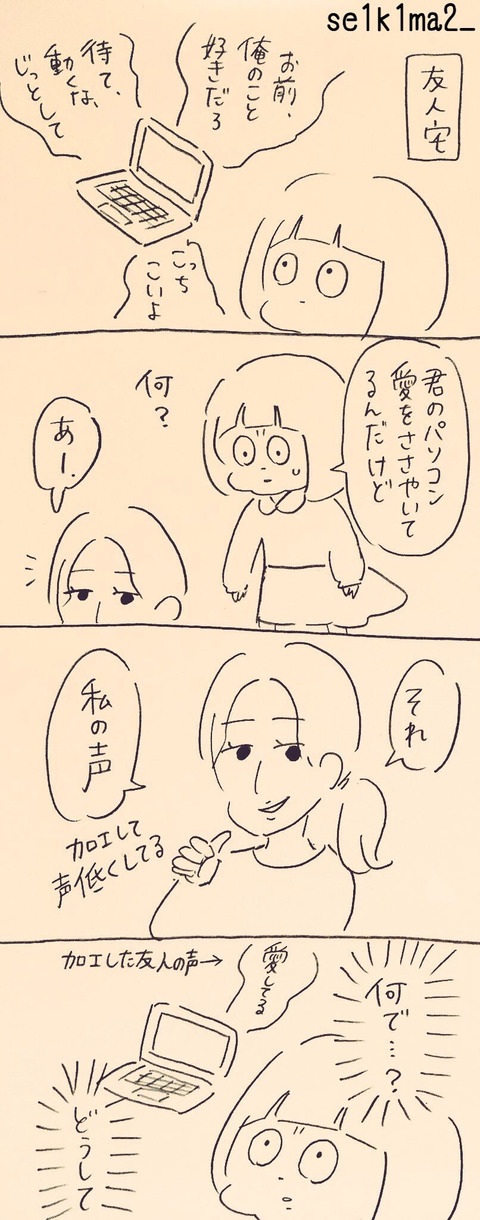 se1k1ma2_
友人宅
お前、
俺のこと
好きだろ
待て、
動くな、
じっとして
こっち
こいよ
君のパソコン
愛をささやいて
るんだけど
何？
あー.
それ
私の声
加工して
声低くしてる
加工した友人の声→
愛してる
何で…?
どうして